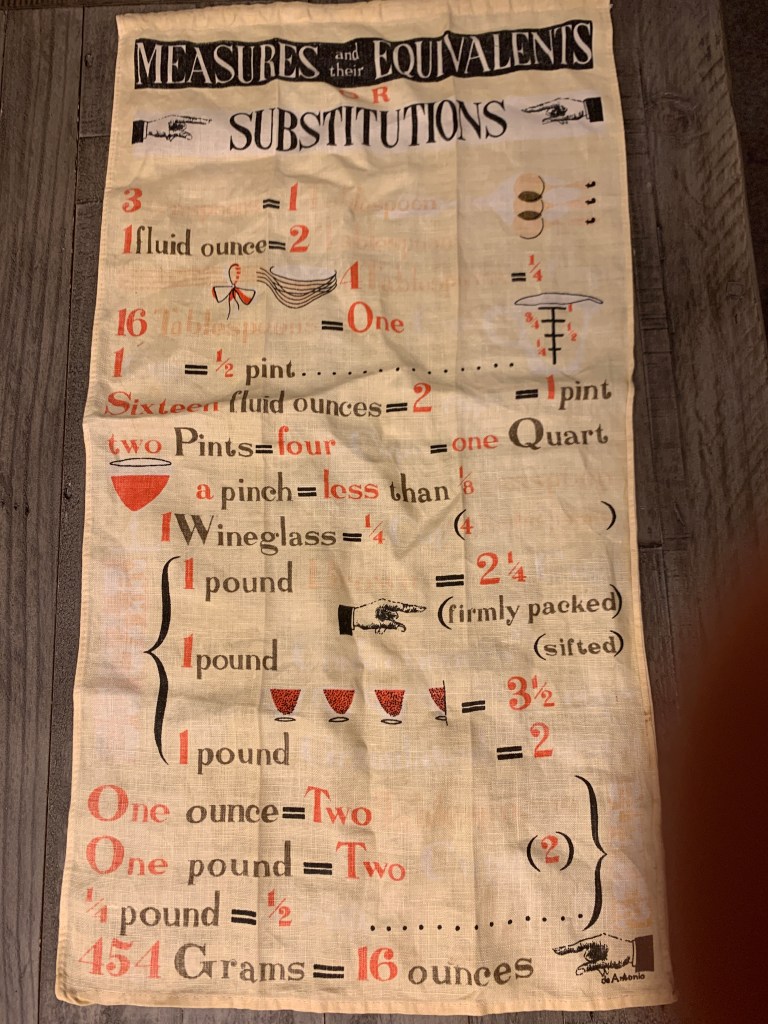 MEASURES and their EQUIVALENTS
OR
SUBSTITUTIONS
3 = 1
1 fluid ounce = 2
4 = 1/4
16 Tablespoons = One
3/4 1/2 1/4 1
1 = 1/2 pint..............
Sixteen fluid ounces = 2 = 1 pint
two Pints = four = one Quart
a pinch = less than 1/8
1 Wineglass = 1/4 (4 )
1 pound = 2 1/4
(firmly packed)
1 pound (sifted)
= 3 1/2
1 pound = 2
One ounce = Two
One pound = Two (2)
1/4 pound = 1/2 ............
454 Grams = 16 ounces
de Antonio